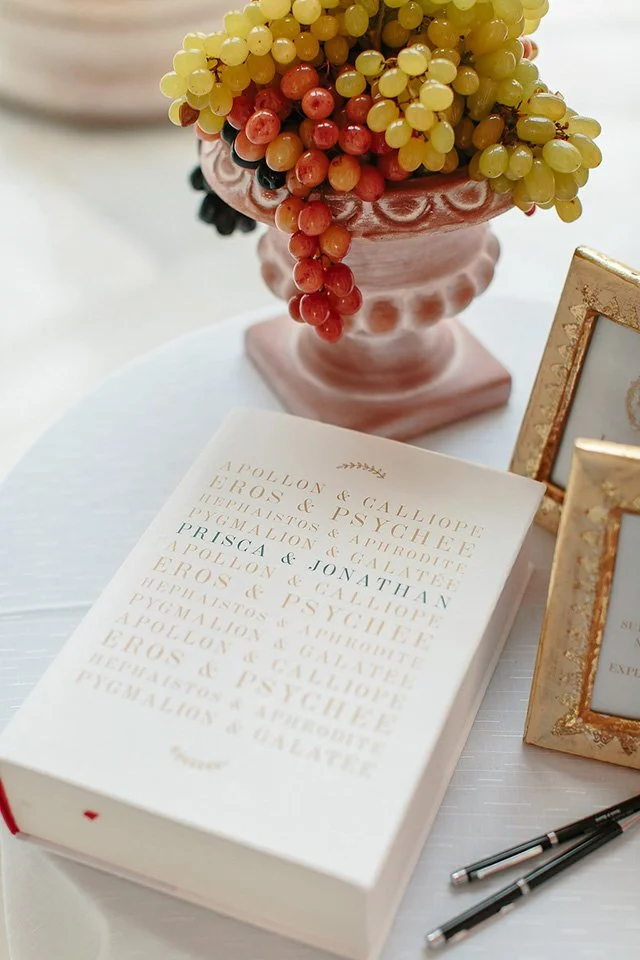 APOLLON & CALLIOPE
EROS & PSYCHEE
HEPHAISTOS & APHRODITE
PYGMALION & GALATÉE
PRISCA & JONATHAN
APOLLON & CALLIOPE
EROS & PSYCHEE
HEPHAISTOS & APHRODITE
PYGMALION & GALATÉE
APOLLON & CALLIOPE
EROS & PSYCHEE
HEPHAISTOS & APHRODITE
PYGMALION & GALATÉE